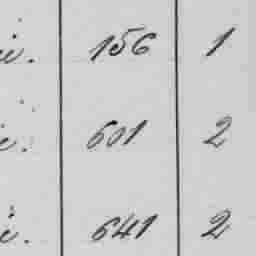 156 1
601 2
641 2